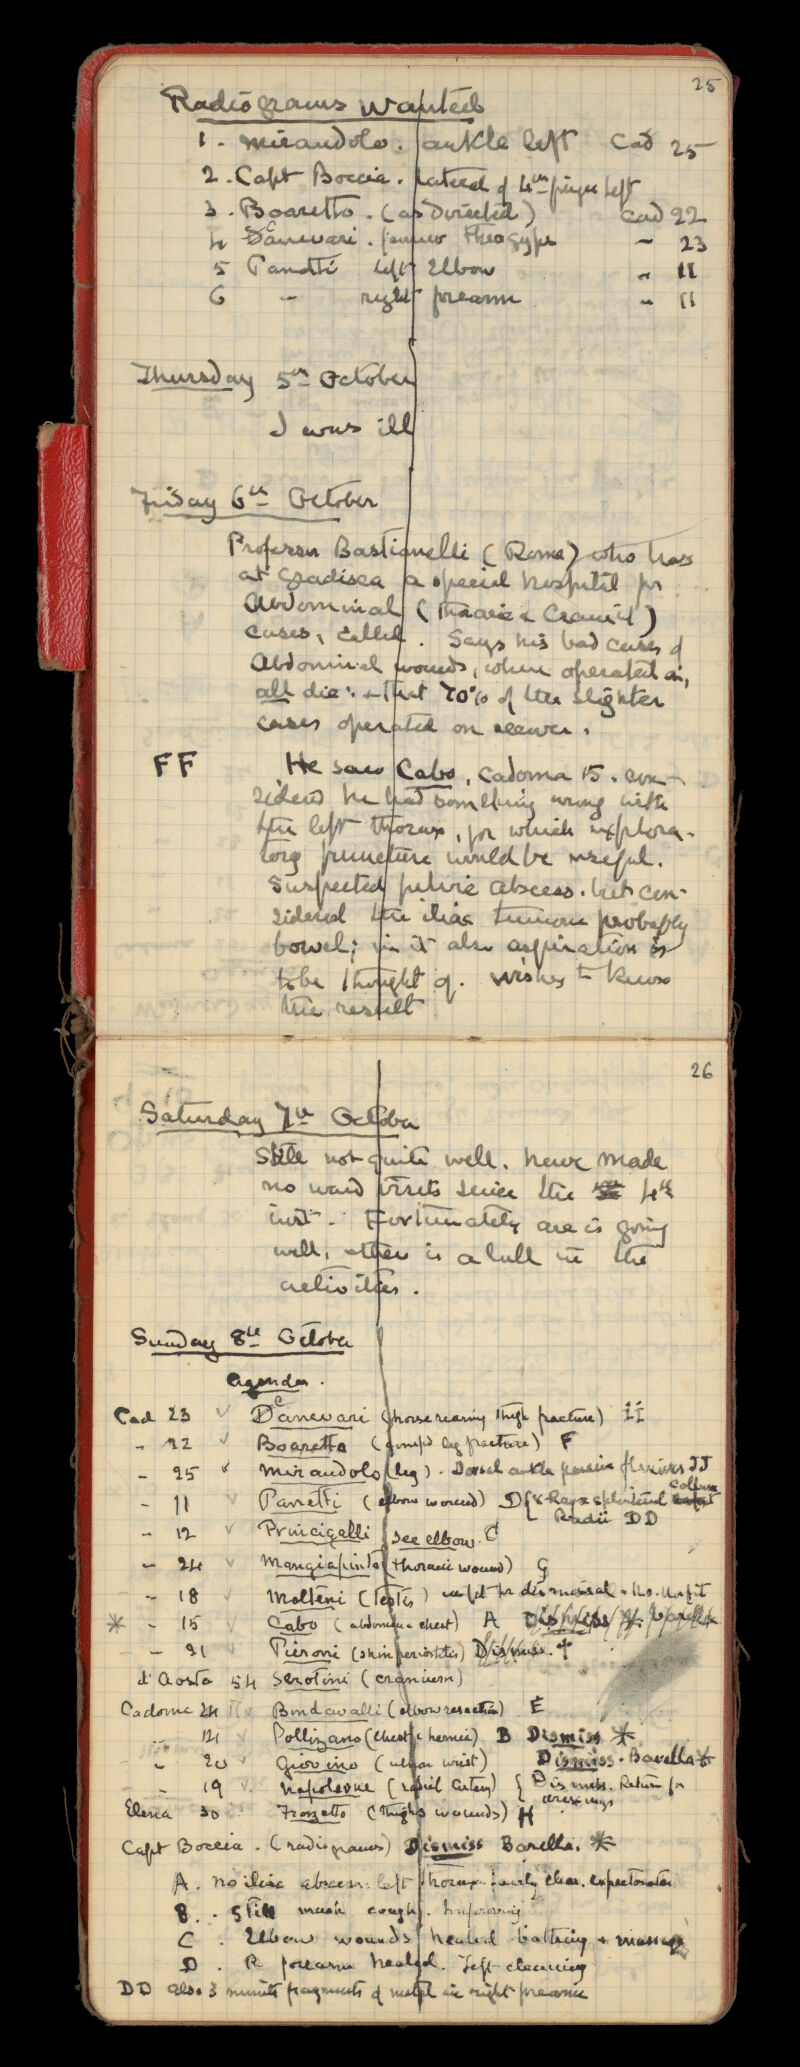 25
Radiograms Wanted
1. Mirandolo. ankle left Cad 25
2. Capt Boccia. lateral of 4th finger left
3. Boaretto. (as Directed) Cad 22
4 Danevari. femur Theogype - 23
5 Panetti left Elbow " 11
6 " right forearm " 11
Thursday 5th October
I was ill
Friday 6th October
Professor Bastianelli (Rome) who has
at Gradisca a special hospital for
Abdominal (Thoracic & Cranial)
cases, called. Says his bad cases of
Abdominal wounds, when operated on,
all die: & that 70% of the slighter
cases operated on recover.
FF He saw Cabo, Cadorna 15. con-
sidered he had something wrong with
the left thorax, for which explora-
tory puncture would be useful.
Suspected pelvic abscess. but con-
sidered the iliac tumour probably
bowel; in it also aspiration is
to be thought of. Wishes to know
the result
26
Saturday 7th October
Still not quite well. have made
no ward visits since the 4th
inst. Fortunately all is going
well, & there is a lull in the
activities.
Sunday 8th October
Agenda.
Cad 23 Danevari (horse rearing thigh fracture) II
- 22 Boaretto (leg fracture) F
- 25 Mirandolo (leg). Dorsal ankle JJ
- 11 Panetti (elbow wound) D { X-Rays splintered Collum
Radii DD
- 12 Principalli see elbow. C
- 24 Mangiapinto (thoracic wound) G
- 18 Molteni (Testis) unfit for dismissal. No. Unfit
* - 15 Cabo (abdomen & chest) A Dismiss * Barella
- 21 Pieroni (shin periostitis) Dismiss. +
d'Aosta 54 Serotini (cranium)
Cadorna 24 Bondavalli (elbow resection) E
" 121 Pollizano (Chest & hernia) B Dismiss *
- 20 Giovino (ulnar wrist) Dismiss. Barella *
- 19 Napoleone (radial artery) { Dismiss. Return for
Elena 30 Frozetto (thighs wounds) H
Capt Boccia. (radiograms) Dismiss Barella. *
A. no iliac abscess: left thorax fairly clear. Expectorates
B. . Still much cough. Improving
C . Elbow wounds healed. bathing & massage
D . R forearm healed. Left cleaning
DD also 3 minute fragments of metal in right forearm